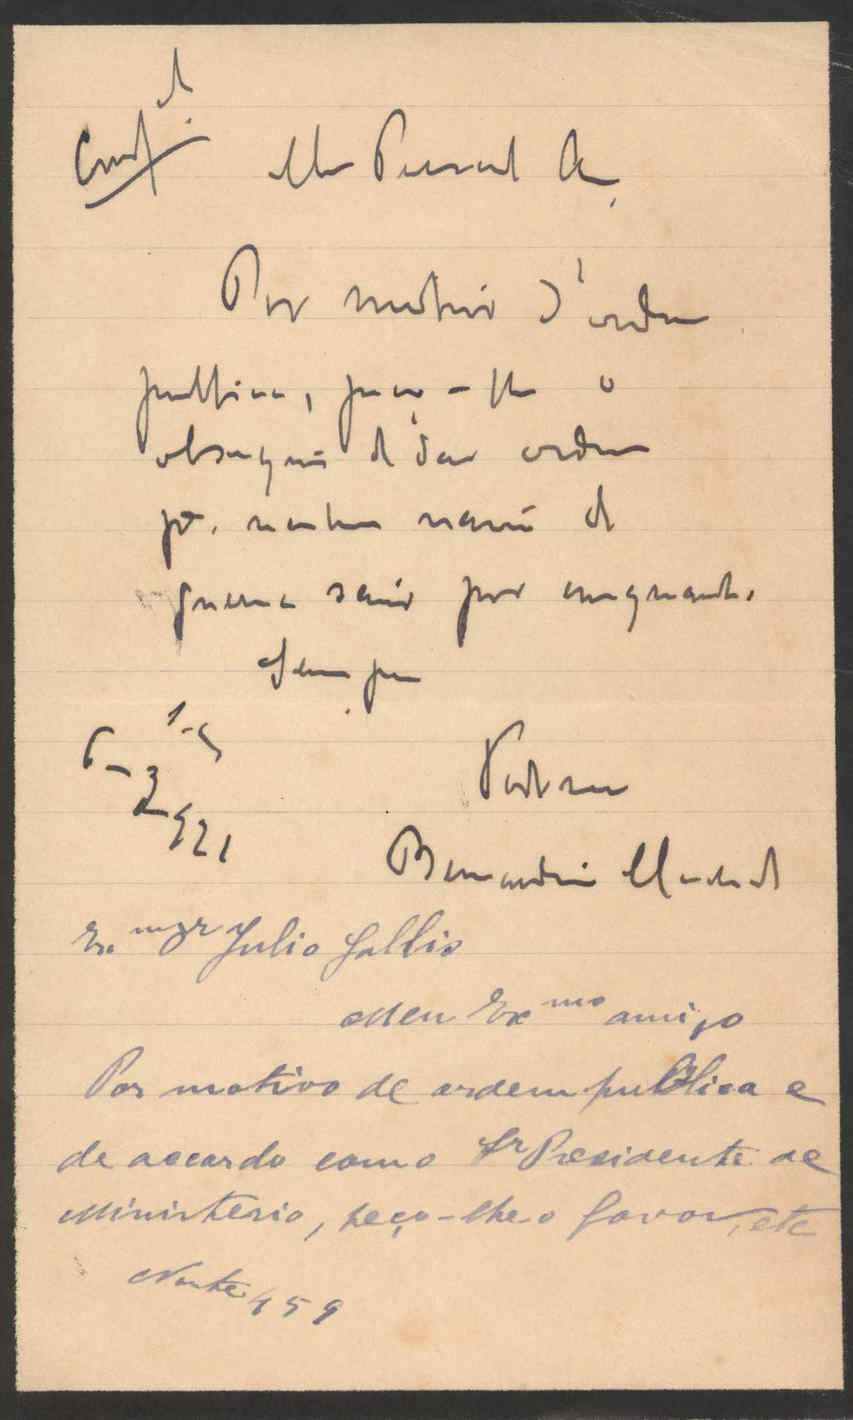 Conf.al
Meu Presado Am.,
Por motivo d'ordem
publica, peço-lhe o
obsequio de dar ordem
pa. nenhum navio de
guerra sair por emquanto.
Sempre
6-3-921
Bernardino Machado
Ex.mo Sr Julio Gallis
Meu Exmo amigo
Por motivo de ordem publica e
de accordo com o Sr Presidente de
Ministerio, peço-lhe o favor, etc
Norte 459